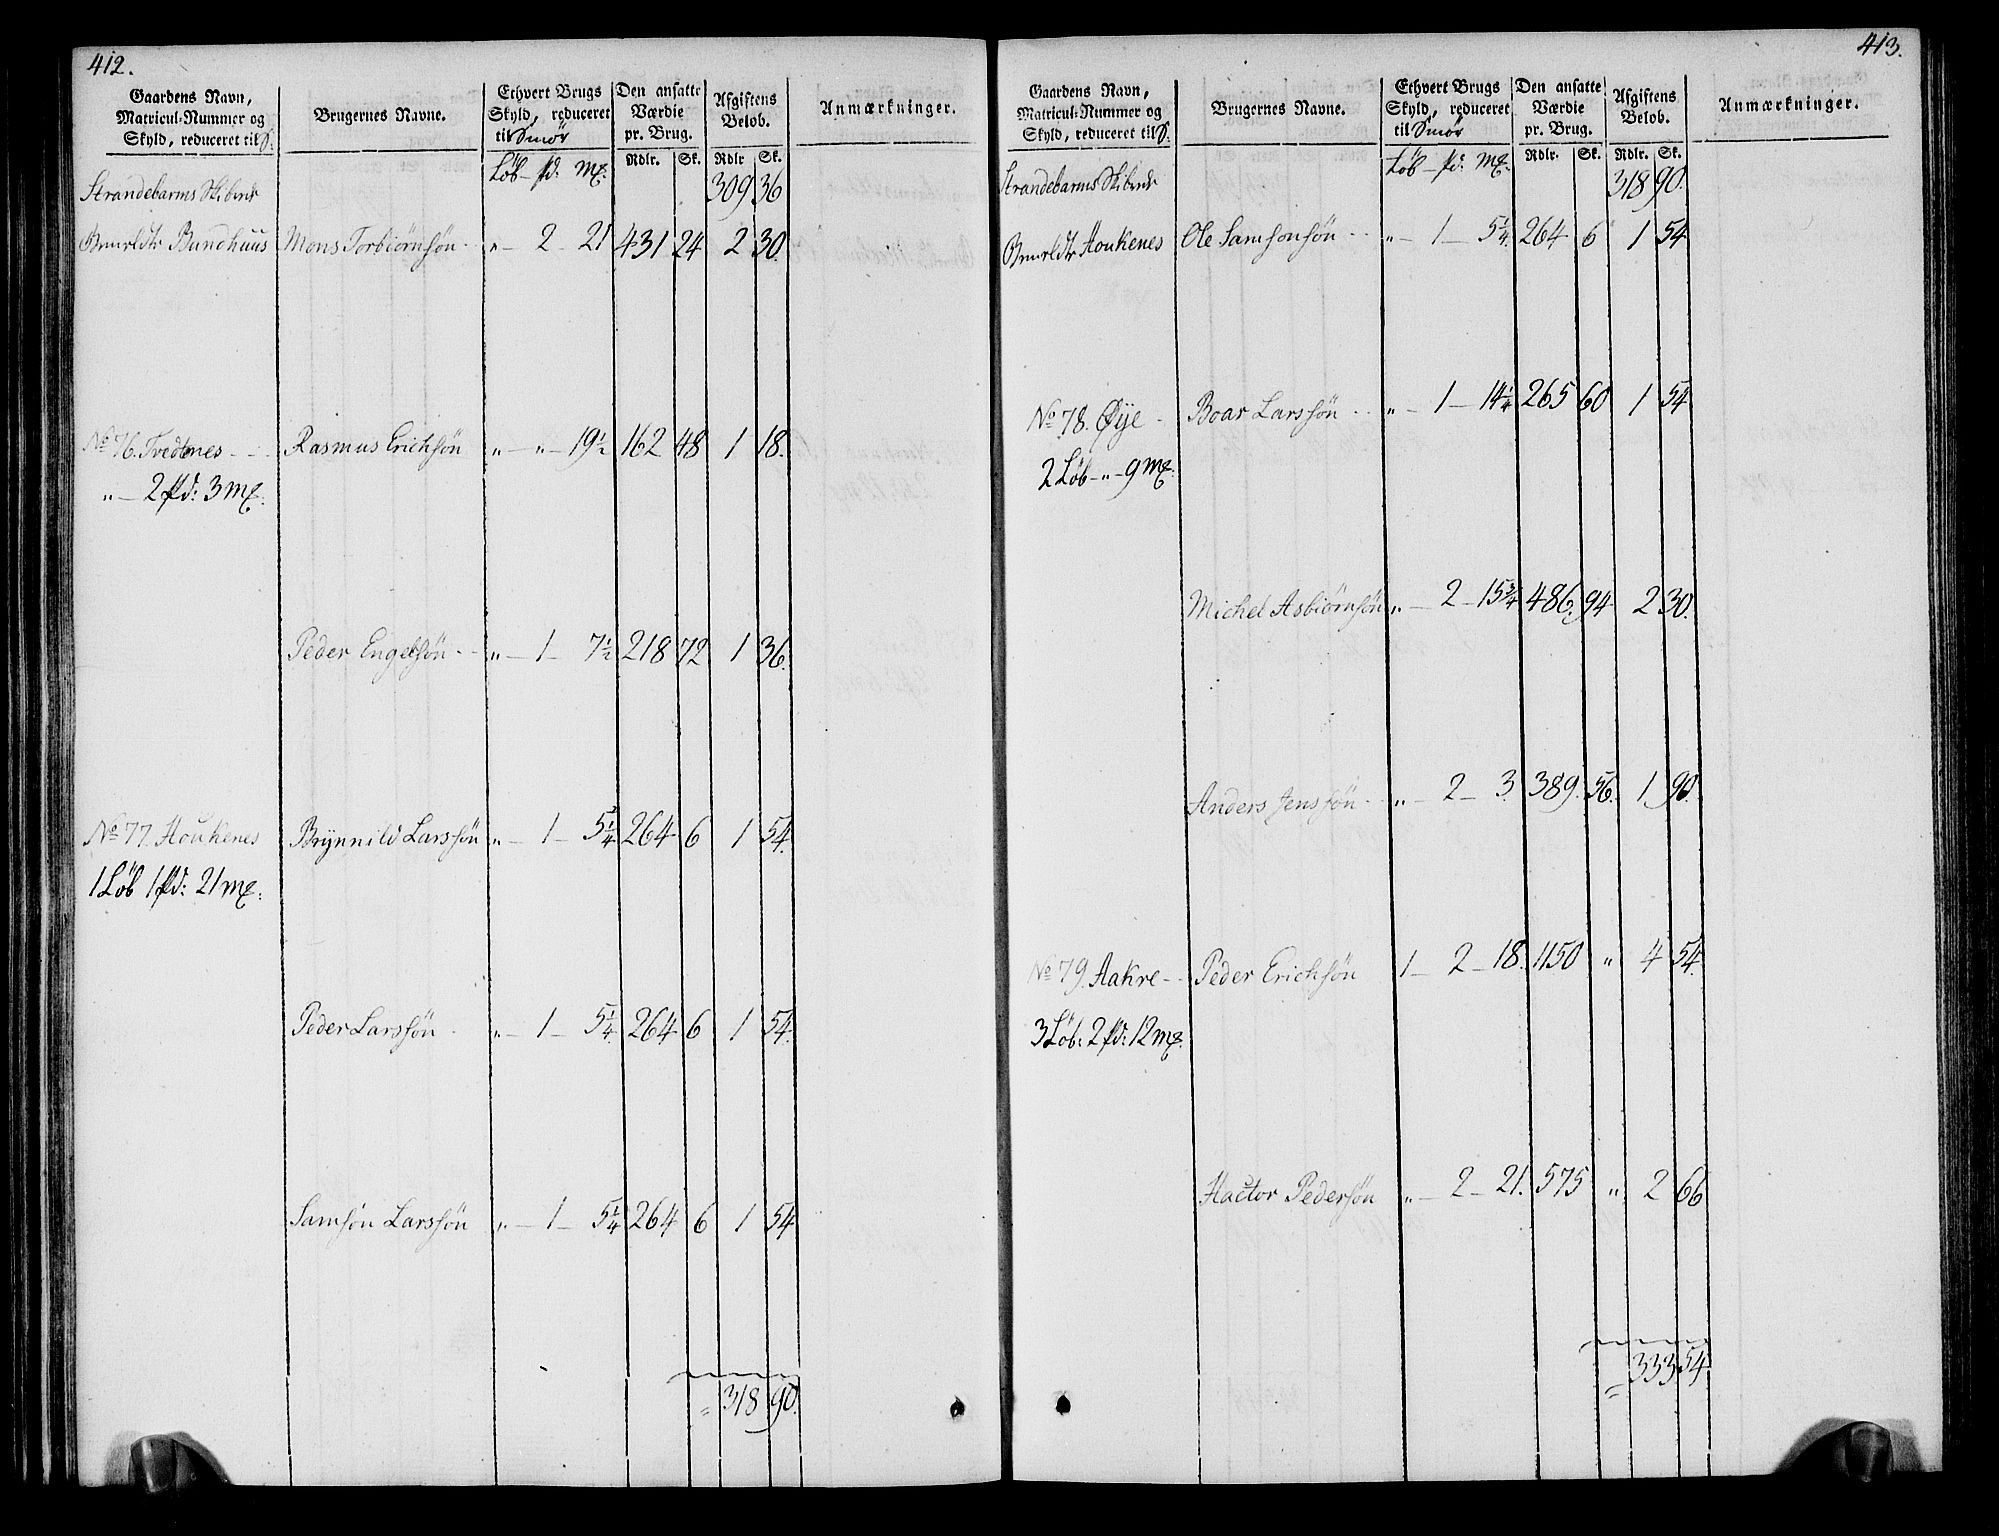 412.
Gaardens Navn, Matricul-Nummer og Skyld, reduceret til S.
Brugernes Navne.
Ethvert Brugs Skyld, reduceret til Smør
Den ansatte Værdie pr. Brug.
Afgiftens Beløb.
Anmærkninger.
Løb – pd: mk. Rdlr. Sk. Rdlr Sk.
Strandebarms Skibrede 309 36
Bundhuus Mons Torbiörnsön - „ – 2 – 21 431 24 2 30.
No 76. Tvedtnes - - Rasmus Erichsön „ – „ – 19½ 162 48 1 18.
„ – 2 pd: 3 mk.
Peder Engelsön - - „ – 1 – 7½ 218 72 1 36.
No 77. Houkenes Brÿnnild Larssön „ – 1 – 5¼ 264 6 1 54.
1 Løb 1 pd: 21 mk.
Peder Larssön - „ – 1 – 5¼ 264 6 1 54.
Samsön Larssön „ – 1 – 5¼ 264 6 1 54
= 318 90.
413.
Gaardens Navn, Matricul-Nummer og Skyld, reduceret til S.
Brugernes Navne.
Ethvert Brugs Skyld, reduceret til Smør
Den ansatte Værdie pr. Brug.
Afgiftens Beløb.
Anmærkninger.
Løb – pd: mk. Rdlr. Sk. Rdlr. Sk.
Strandebarms Skibrede 318 90.
Houkenes Ole Samsonsön - - „ – 1 – 5¼ 264 6 1 54
No 78. Øÿe - Boar Larssön - - „ – 1 – 14¼ 265 60 1 54
2 Løb – „ – 9 mk.
Michel Asbiörnsön „ – 2 – 15¾ 486. 94 2 30.
Anders Jenssön - - „ – 2 – 3. 389. 56. 1 90.
No 79. Aakre - - Peder Erichsön 1 – 2 – 18. 1150 „ 4 54
3 Løb: 2 pd: 12 mk.
Hactor Pedersön „ – 2 – 21. 575 „ 2 66
= 333 54